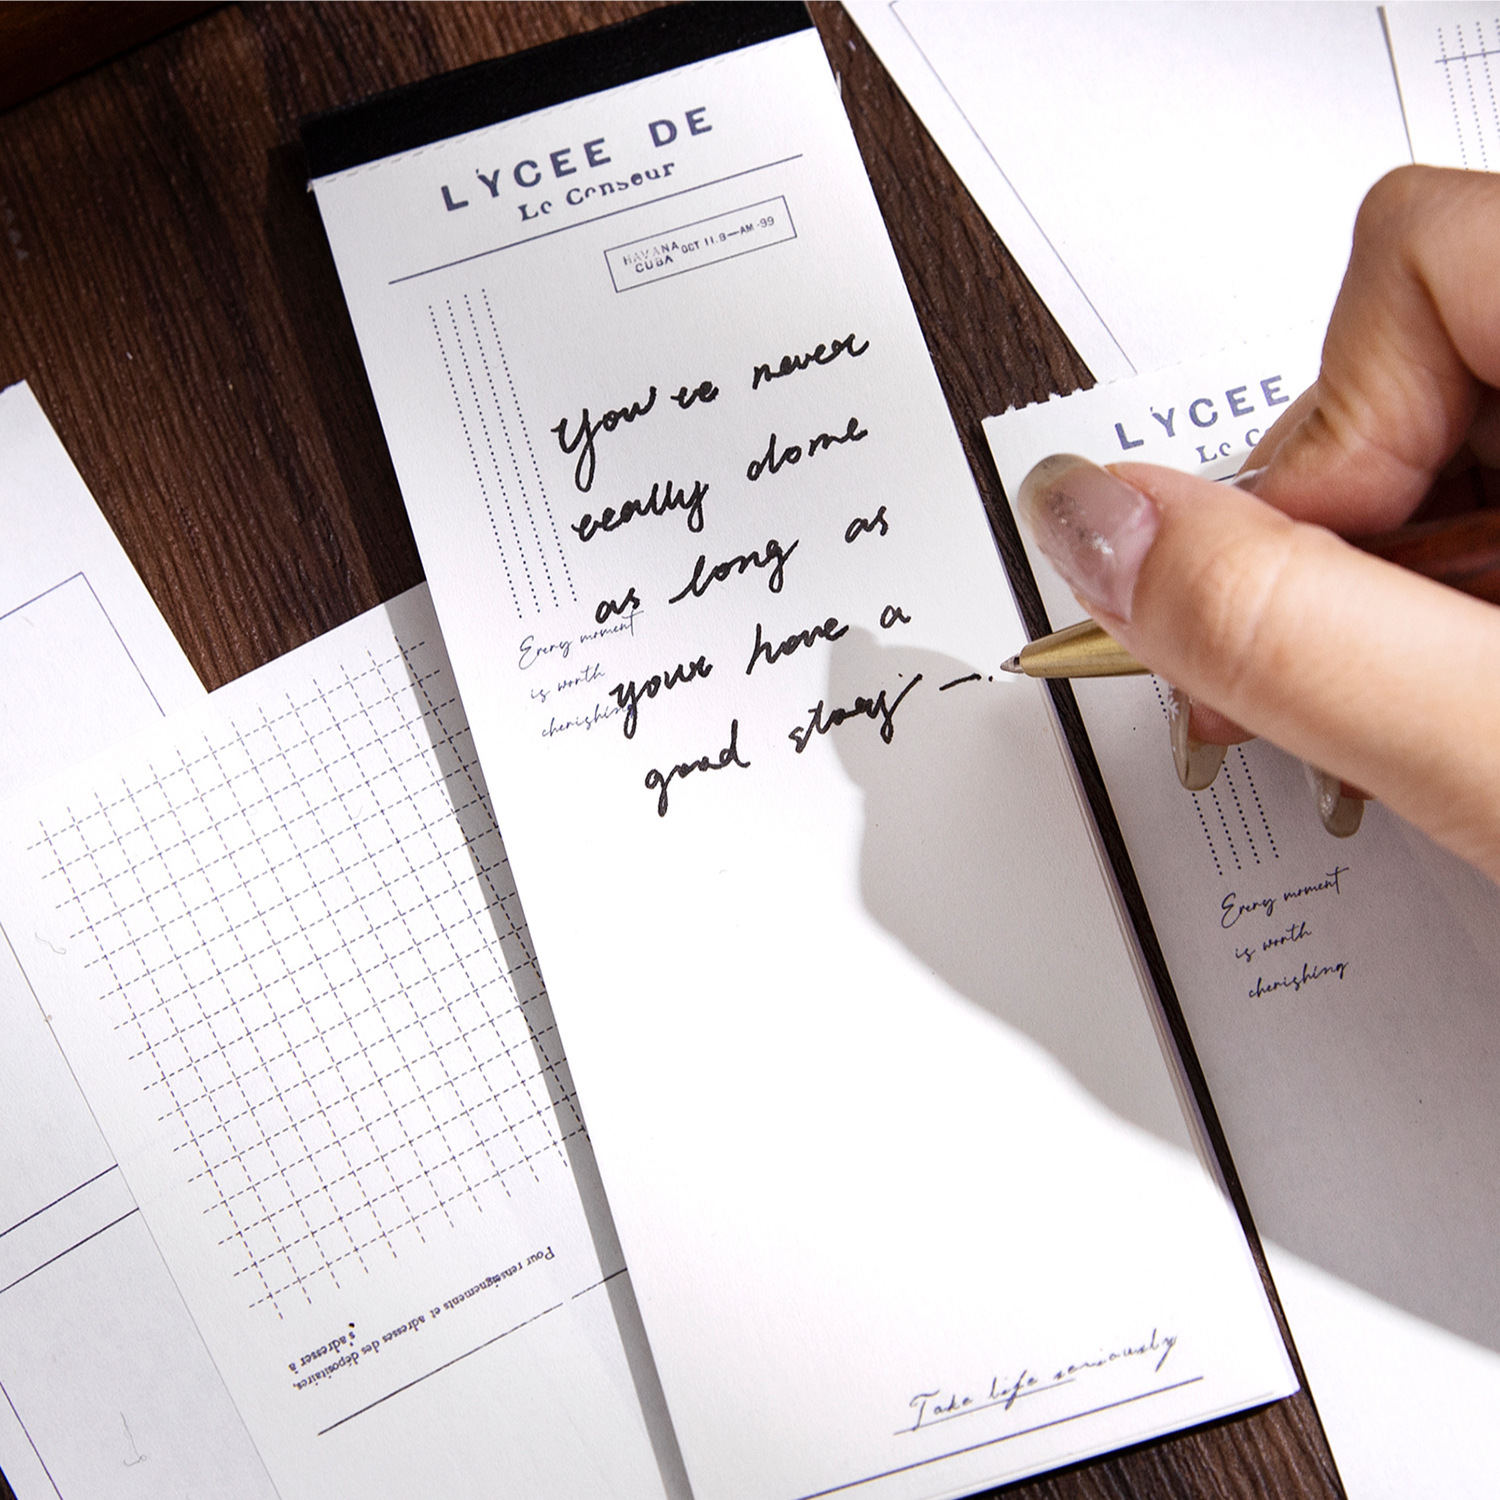 LYCEE DE
Le Censeur
HAVANA
CUBA
OCT 11.8—AM-99
You've never
really dome
as long as
your have a
good story —.
Every moment
is worth
cherishing
Take life seriously
LYCEE
Le C
Every moment
is worth
cherishing
Pour renseignements et adresses des dépositaires,
s'adresser à